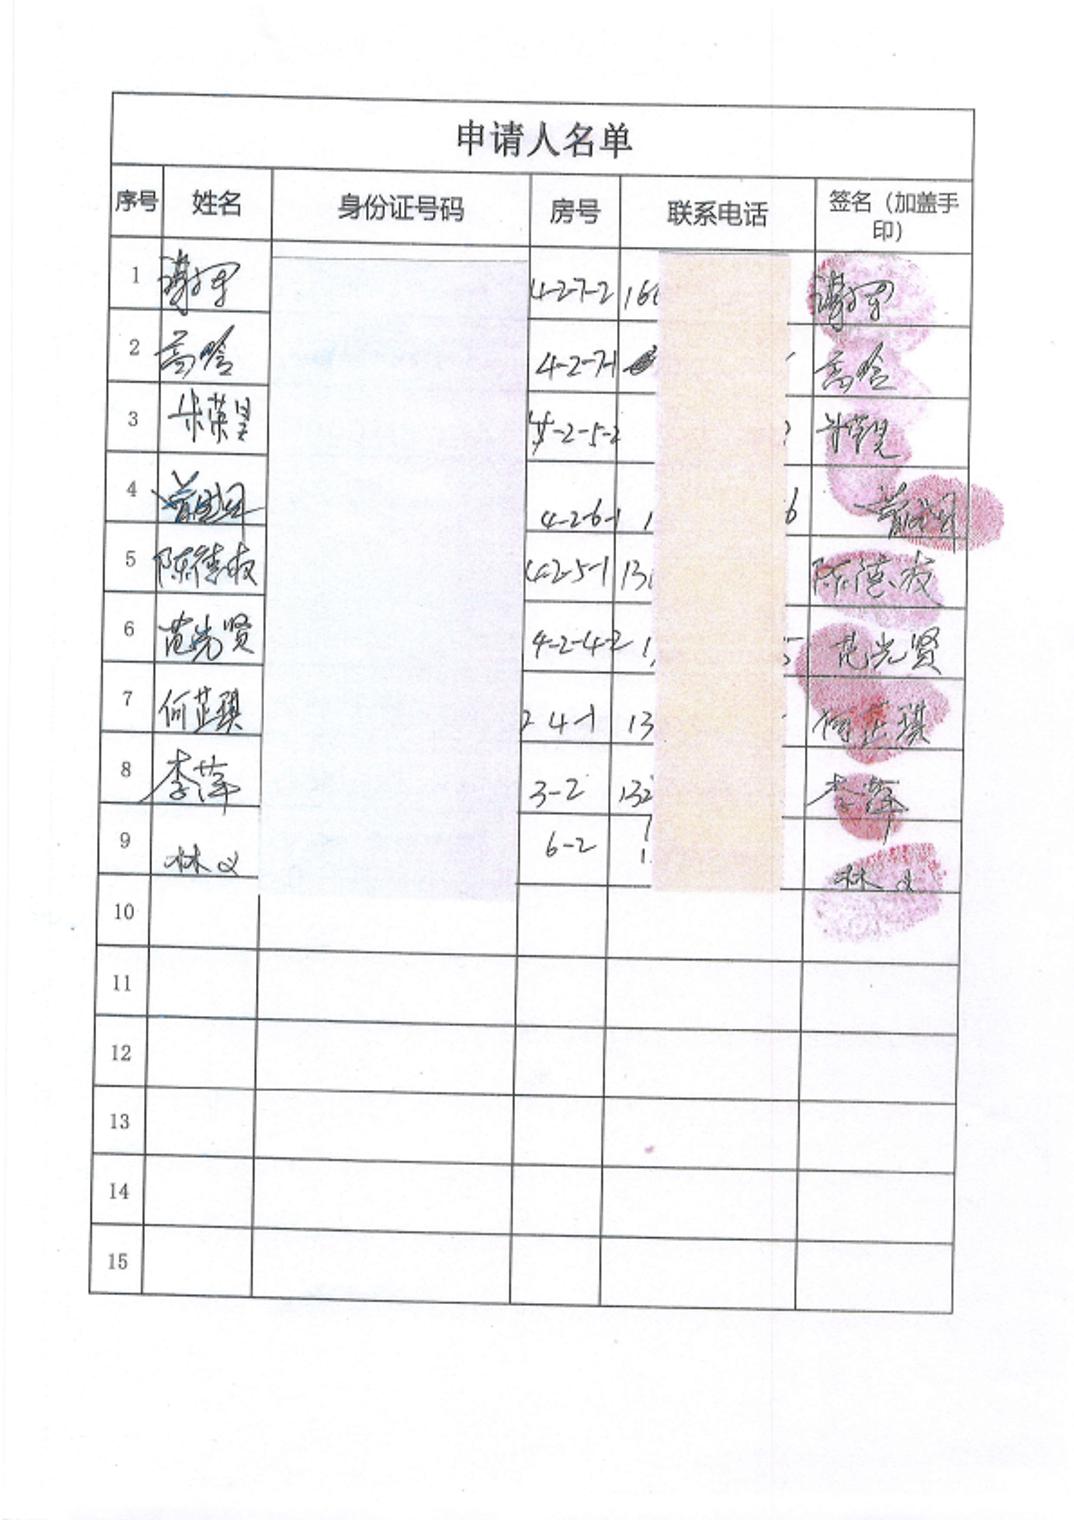 申请人名单
序号 姓名 身份证号码 房号 联系电话 签名（加盖手印）
1 4-2-7-2 166
2 高晗 4-2-7-1 高晗
3 4-2-5-2
4 4-2-6-1 1 6
5 陈德友 4-2-5-1 13 陈德友
6 范光贤 4-2-4-2 1 5 范光贤
7 何芷琪 2 4-1 13 何芷琪
8 李萍 3-2 132 李萍
9 林义 6-2 1 林义
10
11
12
13
14
15